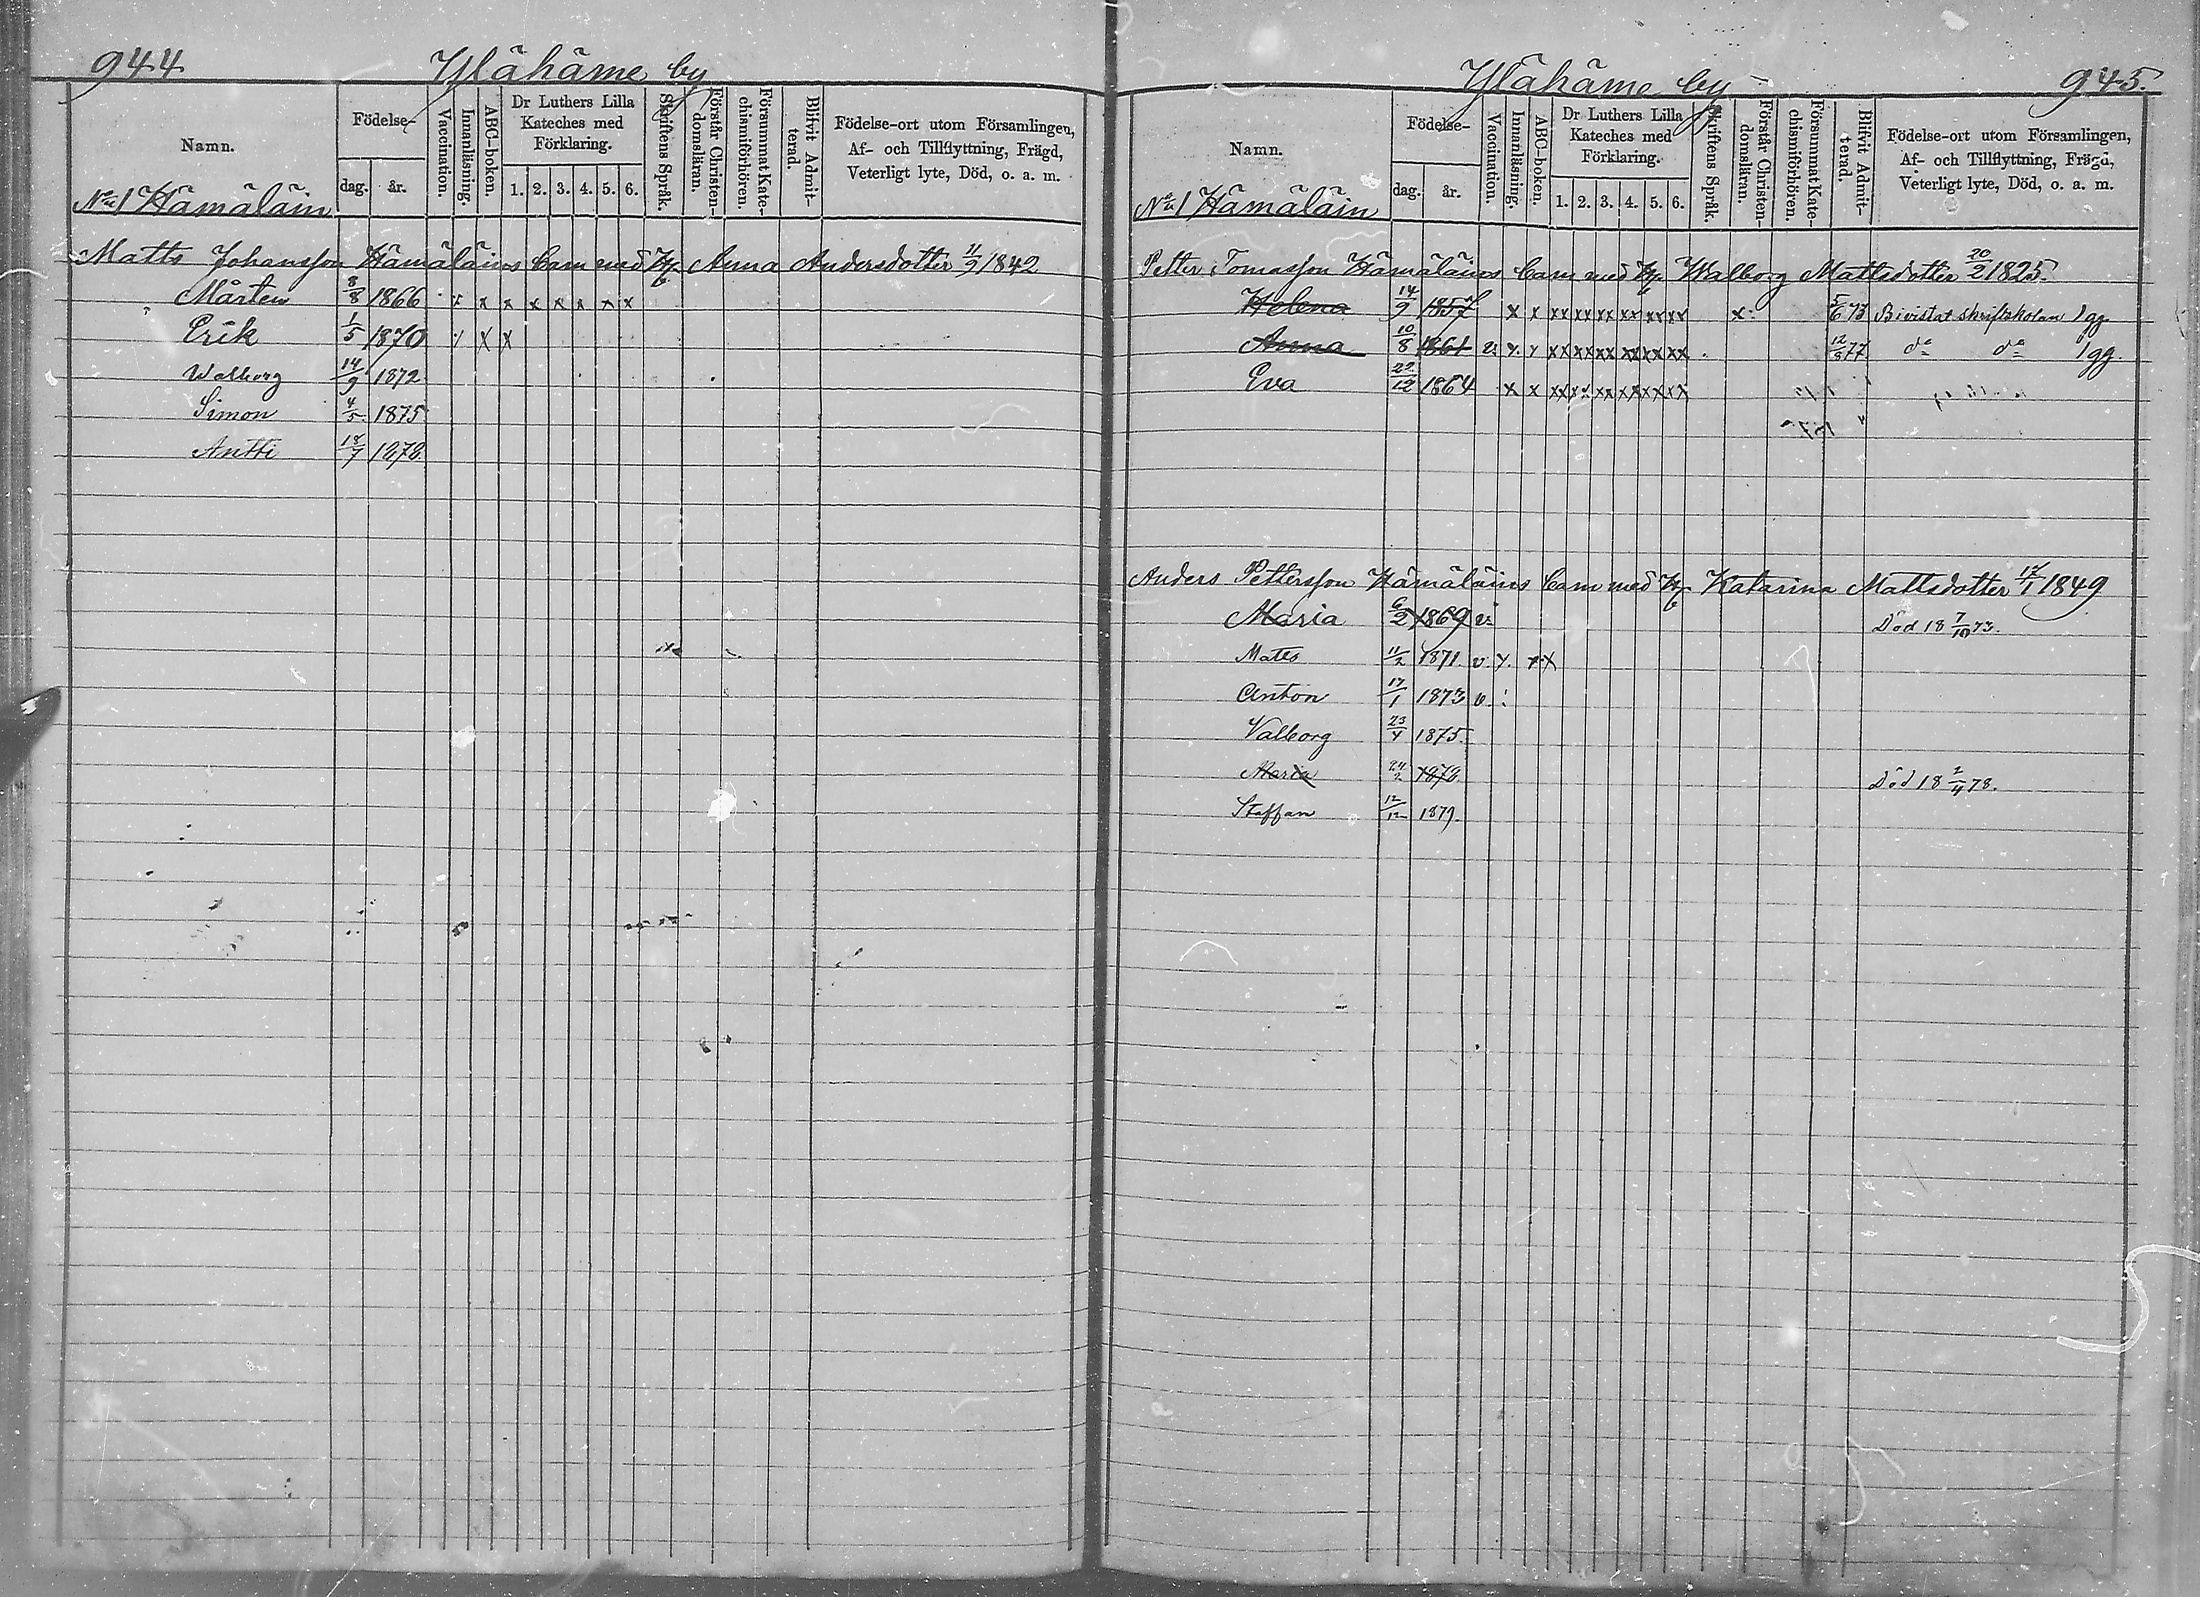 944
Ylähäme by
Namn.
Födelse-
dag.
år.
Vaccination.
Innanläsning.
ABC-boken.
Dr Luthers Lilla
Kateches med
Förklaring.
1. 2. 3. 4. 5. 6.
Skriftens Språk.
Förstår Christen-
domsläran.
Försummat Kate-
chismiförhören.
Blifvit Admit-
terad.
Födelse-ort utom Församlingen,
Af- och Tillflyttning, Frägd,
Veterligt lyte, Död, o. a. m.
No 1 Hämäläin
Matts Johansson Hämäläins barn med Hu Anna Andersdotter 11/9 1842
Mårten 8/8 1866 x x x x x x x x
Erik 1/5 1870 x x
Walborg 14/9 1872
Simon 4/5 1875
Antti 18/7 1878
Ylähäme by
945.
Namn.
Födelse-
dag.
år.
Vaccination.
Innanläsning.
ABC-boken.
Dr Luthers Lilla
Kateches med
Förklaring.
1. 2. 3. 4. 5. 6.
Skriftens Språk.
Förstår Christen-
domsläran.
Försummat Kate-
chismiförhören.
Blifvit Admit-
terad.
Födelse-ort utom Församlingen,
Af- och Tillflyttning, Frägd,
Veterligt lyte, Död, o. a. m.
No 1 Hämäläin
Petter Tomasson Hämäläins barn med Hu Walborg Mattsdotter 20/2 1825.
Helena 14/9 1857 x x xx xx xx xx xx xx x 5/6 73 Bivistat skriftskolan 1 gg.
Anna 10/8 1861 v. x xx xx xx xx xx xx 77 do do 1 gg.
Eva 22/12 1864 x x xx xx xx xx xx xx
Anders Pettersson Hämäläins barn med Hu Katarina Mattsdotter 17/1 1849
Maria 6/2 1869 v. Död 18 7/10 73.
Matts 11/2 1871 v. x x
Anton 17/1 1873 v.
Valborg 23/4 1875.
Maria 24/2 1878. Död 18 2/4 78.
Staffan 12/12 1879.